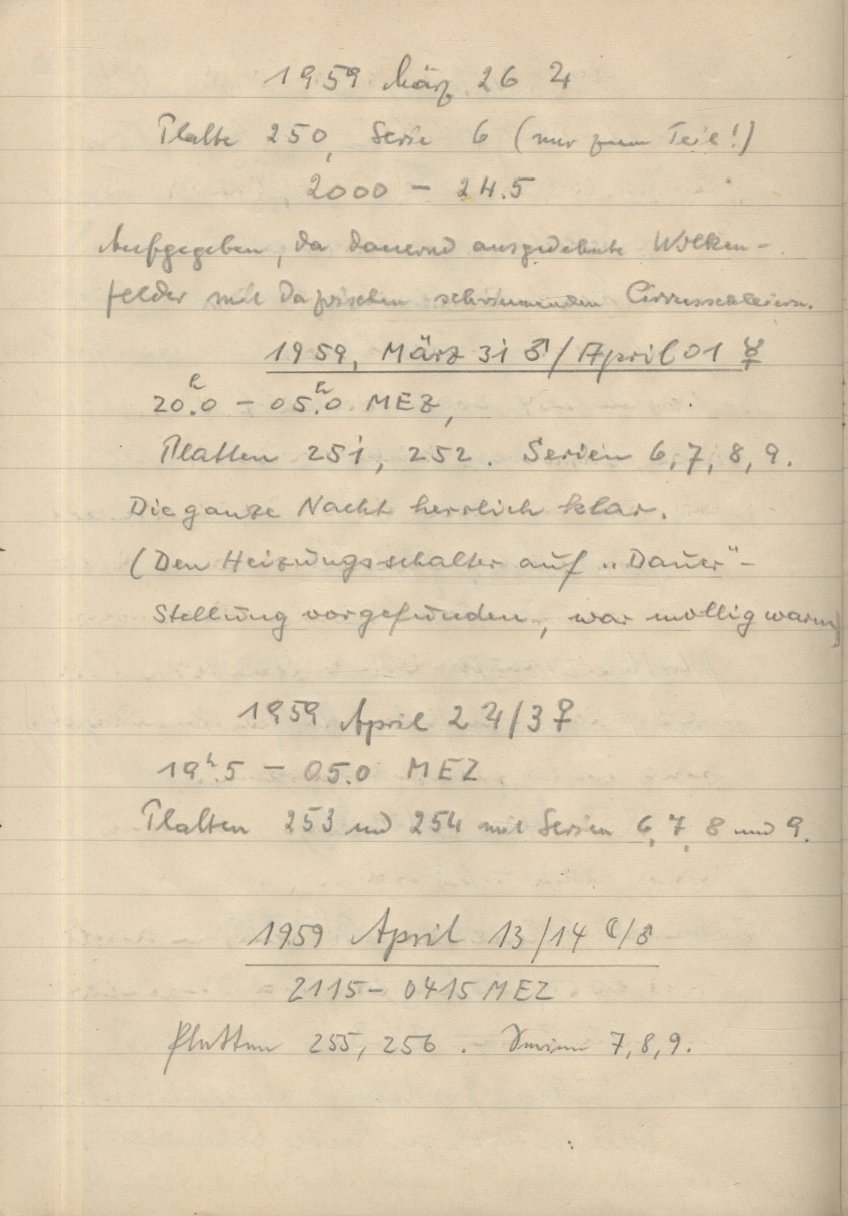 1959 März 26 ♃
Platte 250, Serie 6 (nur zum Teil!)
2000 – 24.5
Aufgegeben, da dauernd ausgedehnte Wolken-
felder mit dazwischen schwimmenden Cirrusschleiern.
1959, März 31 ♂/April 01 ☿
20ʰ.0 – 05ʰ.0 MEZ,
Platten 251, 252. Serien 6, 7, 8, 9.
Die ganze Nacht herrlich klar.
(Den Heizungsschalter auf „Dauer"-
Stellung vorgefunden, war mollig warm)
1959 April 2 ♃/3 ♀
19ʰ.5 – 05.0 MEZ
Platten 253 und 254 mit Serien 6, 7, 8 und 9.
1959 April 13/14 ☾/♂
2115 – 0415 MEZ
Platten 255, 256. – Serien 7, 8, 9.